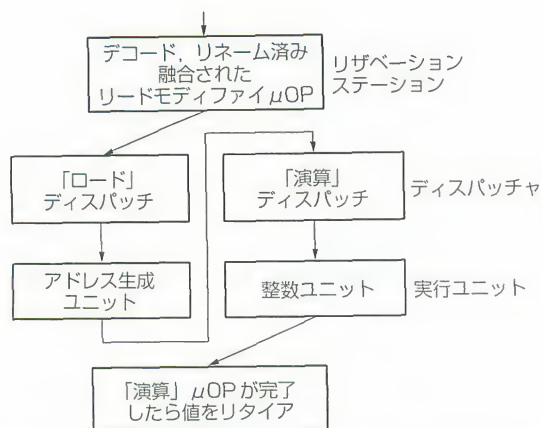 デコード，リネーム済み
融合された
リードモディファイμOP
リザベーション
ステーション
「ロード」
ディスパッチ
「演算」
ディスパッチ
ディスパッチャ
アドレス生成
ユニット
整数ユニット
実行ユニット
「演算」μOPが完了
したら値をリタイア